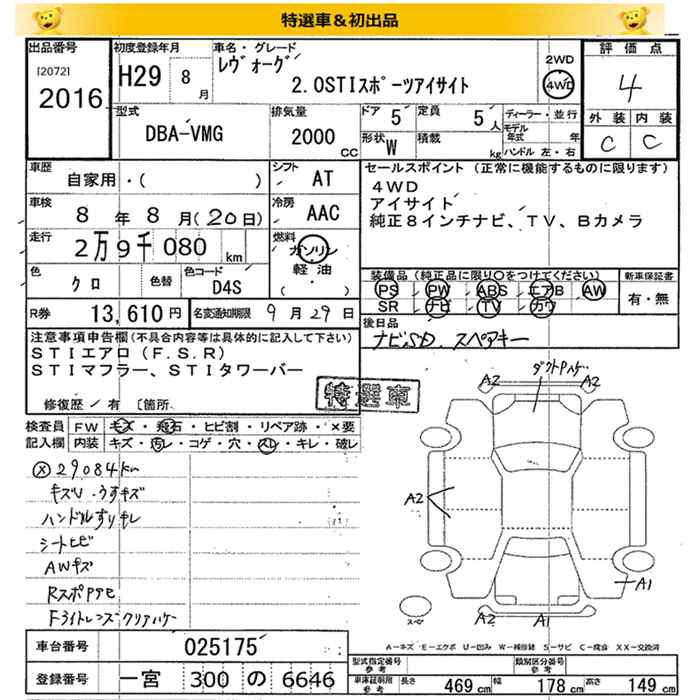 特選車＆初出品
出品番号
[2072]
2016
初度登録年月
H29 8月
車名・グレード
レヴォーグ
2.0STIスポーツアイサイト
2WD
4WD
評価点
4
外装 内装
C C
型式
DBA-VMG
排気量
2000 CC
ドア 5
定員 5人
形状 W
積載 kg
ディーラー・並行
モデル年式 年
ハンドル 左・右
車歴
自家用・( )
シフト AT
車検
8年8月(20日)
冷房 AAC
走行
2万9千080km
燃料 ガソリン
軽油
( )
色 クロ
色替
色コード D4S
R券 13,610円
名変通知期限 9月29日
セールスポイント (正常に機能するものに限ります)
4WD
アイサイト
純正8インチナビ、TV、Bカメラ
装備品 (純正品に限り○をつけてください)
PS PW ABS エアB AW
SR ナビ TV カワ
新車保証書
有・無
後日品
ナビSD. スペアキー
注意事項申告欄(不具合内容等は具体的に記入して下さい)
STIエアロ(F.S.R)
STIマフラー、STIタワーバー
修復歴 / 有 [箇所
特選車
検査員記入欄
FW キズ・飛石・ヒビ割・リペア跡・×要
内装 キズ・汚レ・コゲ・穴・スレ・キレ・破レ
ⓧ29084km
キズU.うすキズ
ハンドルすりキレ
シートヒビ
AWキズ
RスポPサビ
Fライトレンズクリアハゲ
ダクトPハゲ
A2 A2
A2
A1
A2 A1
スペア
A=キズ・E=エクボ U=凹み W=補修跡 S=サビ C=腐食 XX=交換済
車台番号 025175
登録番号 一宮 300 の 6646
型式指定番号 参考
類別区分番号 参考
車庫証明用 参考
長さ 469cm 幅 178cm 高さ 149cm